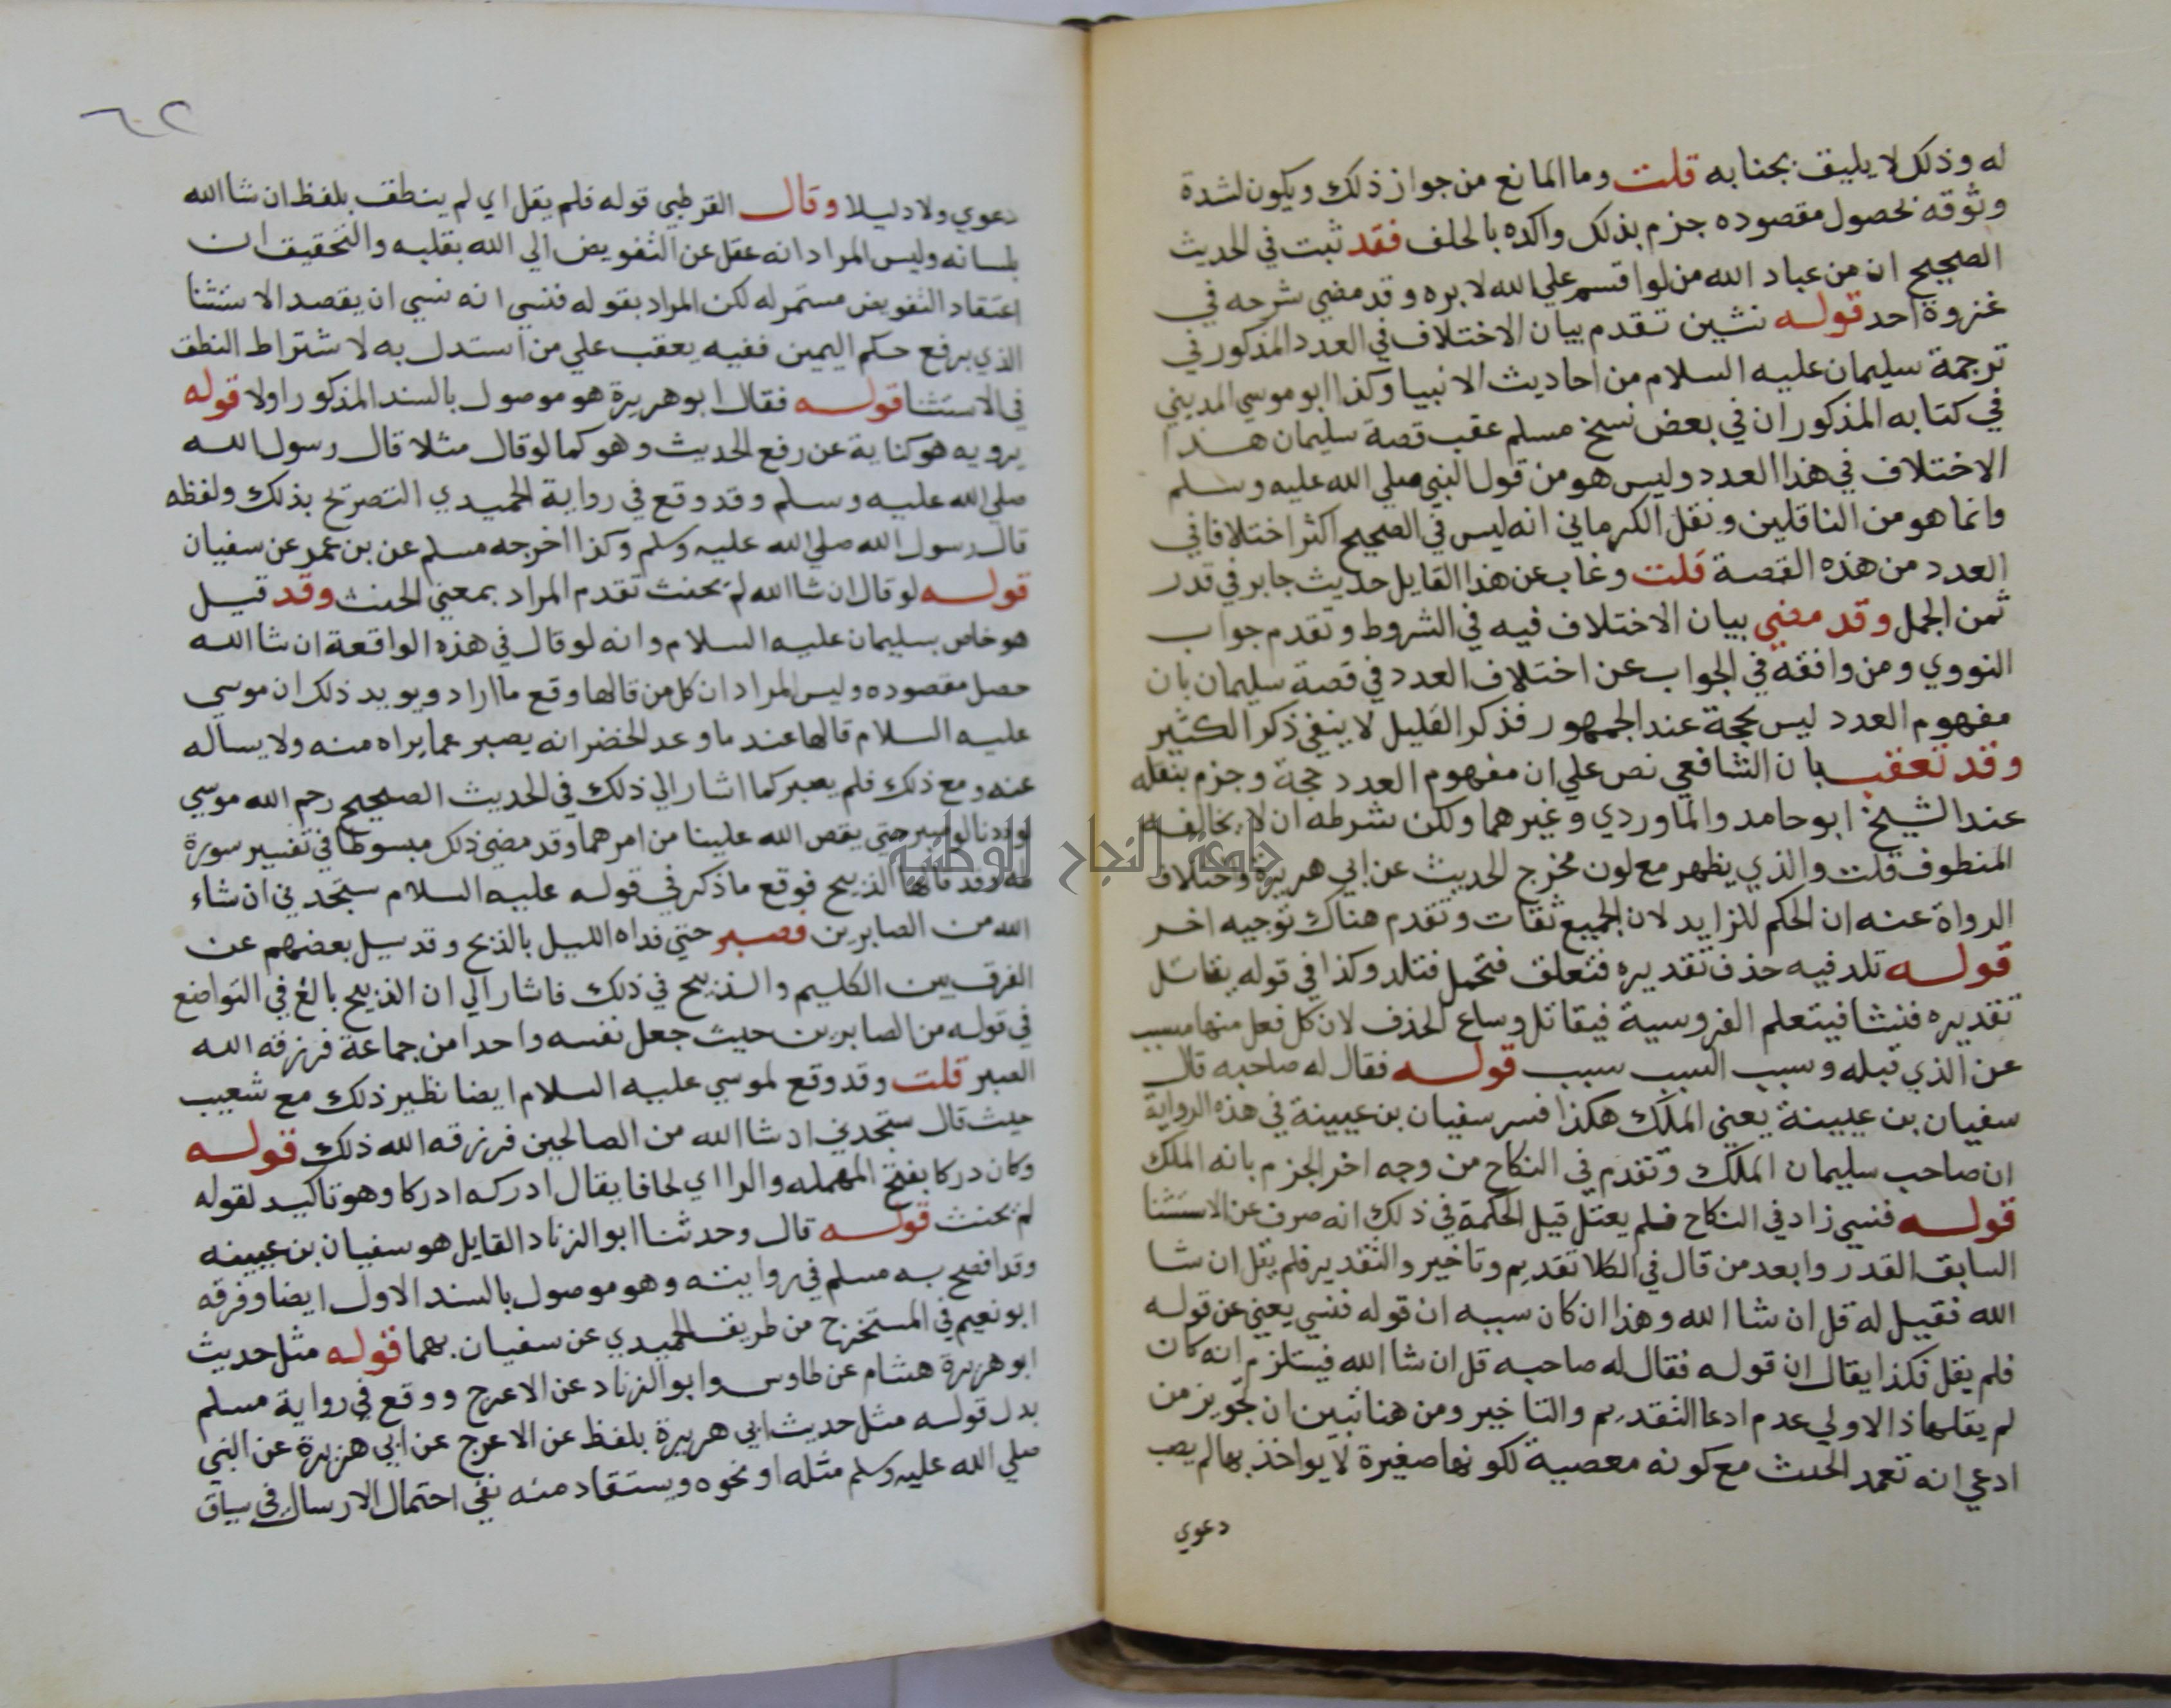 له وذلك لا يليق بجنابه قلت وما المانع من جواز ذلك ويكون لشدة
وثوقه بحصول مقصوده جزم بذلك واكده بالحلف فقد ثبت في الحديث
الصحيح ان من عباد الله من لو اقسم علي الله لابره وقد مضي شرحه في
غزوة احد قوله تسعين تقدم بيان الاختلاف في العدد المذكور في
ترجمة سليمان عليه السلام من احاديث الانبيا وكذا ابو موسي المديني
في كتابه المذكور ان في بعض نسخ مسلم عقب قصة سليمان هذا
الاختلاف في هذا العدد وليس هو من قول النبي صلي الله عليه وسلم
وانما هو من الناقلين ونقل الكرماني انه ليس في الصحيح اكثر اختلافا في
العدد من هذه القصة قلت وغاب عن هذا القايل حديث جابر في قدر
ثمن الجمل وقد مضي بيان الاختلاف فيه في الشروط وتقدم جواب
النووي ومن وافقه في الجواب عن اختلاف العدد في قصة سليمان بان
مفهوم العدد ليس بحجة عند الجمهور فذكر القليل لا ينفي ذكر الكثير
وقد تعقب بان الشافعي نص علي ان مفهوم العدد حجة وجزم بنقله
عند الشيخ ابو حامد والماوردي وغيرهما ولكن شرطه ان لا يخالفه
المنطوف قلت والذي يظهر مع لون مخرج الحديث عن ابي هريرة واختلاف
الرواة عنه ان الحكم للزايد لان الجميع ثقات وتقدم هناك توجيه اخر
قوله تلد فيه حذف تقديره فتعلق فتحمل فتلد وكذا في قوله يقاتل
تقديره فنشا فيتعلم الفروسية فيقاتل وساع الحذف لان كل فعل منها مسبب
عن الذي قبله وسبب السبب سبب قوله فقال له صاحبه قال
سفيان بن عيينة يعني الملك هكذا فسر سفيان بن عيينة في هذه الرواية
ان صاحب سليمان الملك وتقدم في النكاح من وجه اخر الجزم بانه الملك
قوله فنسي زاد في النكاح فلم يعتل قيل الحكمة في ذلك انه صرف عن الاستثنا
السابق القدر وابعد من قال في الكلا تقديم وتاخير والتقدير فلم يقل ان شا
الله فقيل له قل ان شا الله وهذا ان كان سببه ان قوله فنسي يعني عن قوله
فلم يقل فكذا يقال ان قوله فقال له صاحبه قل ان شا الله فيستلزم انه كان
لم يقلها ذا الاولي عدم ادعا التقديم والتاخير ومن هنا تبين ان تجويز من
ادعي انه تعمد الحنث مع كونه معصية لكونها صغيرة لا يواخذ بها لم يصب
دعوي
٢٠٢
دعوي ولا دليلا وقال القرطبي قوله فلم يقل اي لم ينطق بلفظ ان شا الله
بلسانه وليس المراد انه غفل عن التفويض الي الله بقلبه والتحقيق ان
اعتقاد التفويض مستمر له لكن المراد بقوله فنسي انه نسي ان يقصد الاستثنا
الذي يرفع حكم اليمين ففيه يعقب علي من استدل به لاشتراط النطق
في الاستثنا قوله فقال ابو هريرة هو موصول بالسند المذكور اولا قوله
يرويه هو كناية عن رفع الحديث وهو كما لو قال مثلا قال رسول الله
صلي الله عليه وسلم وقد وقع في رواية الحميدي التصريح بذلك ولفظه
قال رسول الله صلي الله عليه وسلم وكذا اخرجه مسلم عن بن عمر عن سفيان
قوله لو قال ان شا الله لم يحنث تقدم المراد بمعني الحنث وقد قيل
هو خاص بسليمان عليه السلام وانه لو قال في هذه الواقعة ان شا الله
حصل مقصوده وليس المراد ان كل من قالها وقع ما اراد ويويد ذلك ان موسي
عليه السلام قالها عند ما وعد الخضر انه يصبر عما يراه منه ولا يساله
عنه ومع ذلك فلم يصبر كما اشار الي ذلك في الحديث الصحيح رحم الله موسي
لوددنا لو صبر حتي يقص الله علينا من امرهما وقد مضي ذلك مبسوطا في تفسير سورة
طه وقد قالها الذبيح فوقع ما ذكر في قوله عليه السلام ستجدني ان شاء
الله من الصابرين فصبر حتي فداه الليل بالذبح وقد سيل بعضهم عن
الفرق بين الكليم والذبيح في ذلك فاشار الي ان الذبيح بالغ في التواضع
في قوله من الصابرين حيث جعل نفسه واحدا من جماعة فرزقه الله
الصبر قلت وقد وقع لموسي عليه السلام ايضا نظير ذلك مع شعيب
حيث قال ستجدني ان شا الله من الصالحين فرزقه الله ذلك قوله
وكان دركا بفتح المهمله والرا اي لحاقا يقال ادركه ادركا وهو تاكيد لقوله
لم يحنث قوله قال وحدثنا ابو الزناد القايل هو سفيان بن عيينه
وقد افصح به مسلم في روايته وهو موصول بالسند الاول ايضا وفرقه
ابو نعيم في المستخرج من طريق الحميدي عن سفيان بهما قوله مثل حديث
ابو هريرة هشام عن طاوس وابو الزناد عن الاعرج ووقع في رواية مسلم
بدل قوله مثل حديث ابي هريرة بلفظ عن الاعرج عن ابي هريرة عن النبي
صلي الله عليه وسلم مثله او نحوه ويستفاد منه نفي احتمال الارسال في سياق
جامعة النجاح الوطنية